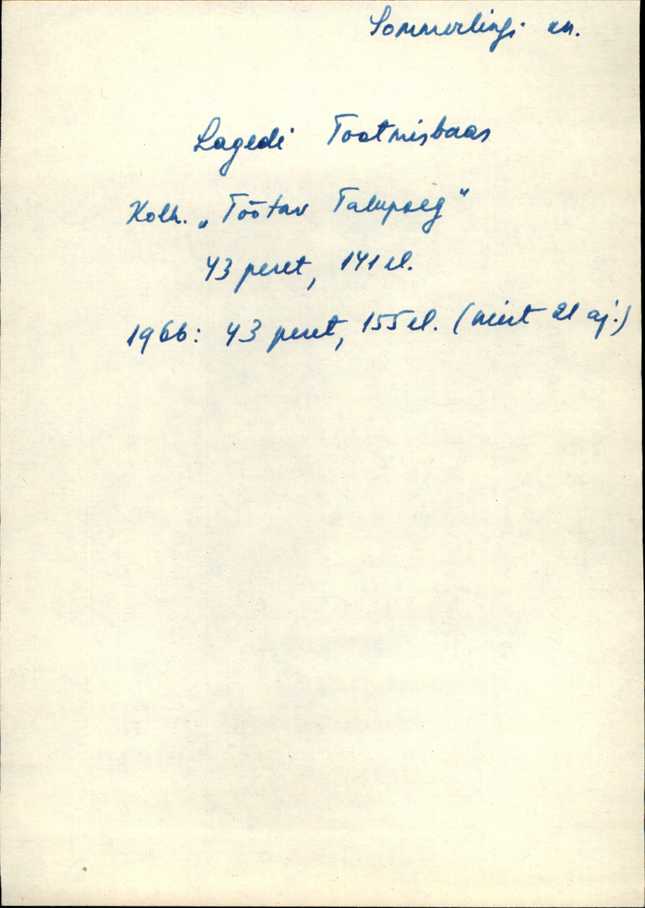 Sommerlingi kn.
Lagedi Tootmisbaas
Kolh. „Töötav Talupoeg"
43 peret, 141 el.
1966: 43 peret, 155 el. (neist 21 aj.)